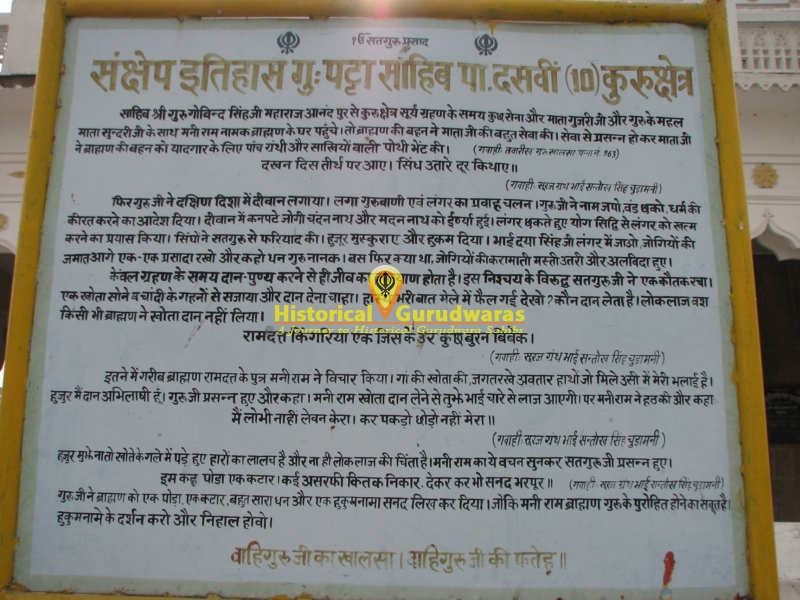 ੧ੳ सतगुरू प्रसाद
संक्षेप इतिहास गुः पट्टा साहिब पा. दसवीं (10) कुरुक्षेत्र
साहिब श्री गुरु गोविन्द सिंह जी महाराज आनंद पुर से कुरुक्षेत्र सूर्य ग्रहण के समय कुछ सेना और माता गुजरी जी और गुरु के महल
माता सुन्दरी जी के साथ मनी राम नामक ब्राह्मण के घर पहुंचे। तो ब्राह्मण की बहन ने माता जी की बहुत सेवा की। सेवा से प्रसन्न हो कर माता जी
ने ब्राह्मण की बहन को यादगार के लिए पंच ग्रंथी और साखियों वाली पोथी भेंट की। (गवाही: तवारीख गुरु खालसा पन्ना नं. 963)
दखन दिस तीर्थ पर आए। सिंध उतारे दूर किथाए॥
(गवाही: सूरज ग्रंथ भाई सन्तोख सिंह चुड़ामनी)
फिर गुरु जी ने दक्षिण दिशा में दीवान लगाया। लगा गुरुबाणी एवं लंगर का प्रवाह चलन। गुरु जी ने नाम जपो, वंड छको, धर्म की
कीरत करने का आदेश दिया। दीवान में कनपटे जोगी चंदन नाथ और मदन नाथ को ईर्ष्या हुई। लंगर छकते हुए योग सिद्धि से लंगर को खत्म
करने का प्रयास किया। सिंघों ने सतगुरु से फरियाद की। हुजूर मुस्कुराए और हुकम दिया। भाई दया सिंह जी लंगर में जाओ, जोगियों की
जमात आगे एक-एक प्रसादा रखो और कहो धन गुरु नानक। बस फिर क्या था, जोगियों की करामाती मस्ती उतरी और अलविदा हुए।
केवल ग्रहण के समय दान-पुण्य करने से ही जीव का कल्याण होता है। इस निश्चय के विरुद्ध सतगुरु जी ने एक कौतक रचा।
एक खोता सोने व चांदी के गहनों से सजाया और दान देना चाहा। भरी बात मेले में फैल गई देखो? कौन दान लेता है। लोक लाज वश
किसी भी ब्राह्मण ने खोता दान नहीं लिया।
Historical Gurudwaras
A Journey to Historical Gurudwara Sahibs
रामदत्त किगरिया एक जिसके उर कुछ बुरन बिबेक।
(गवाही: सूरज ग्रंथ भाई सन्तोख सिंह चुड़ामनी)
इतने में गरीब ब्राह्मण रामदत्त के पुत्र मनी राम ने विचार किया। गां की खोता की, जगत रखे अवतार हाथों जो मिले उसी में मेरी भलाई है।
हुजुर मैं दान अभिलाषी हूं। गुरु जी प्रसन्न हुए और कहा। मनी राम खोता दान लेने से तुझे भाई चारे से लाज आएगी। पर मनी राम ने हठ की और कहाः
मैं लोभी नाहीं लेवन केरा। कर पकड़ो छोड़ो नहीं मेरा॥
(गवाही: सूरज ग्रंथ भाई सन्तोख सिंह चुड़ामनी)
हजुर मुझे ना तो खोते के गले में पड़े हुए हारों का लालच है और ना ही लोक लाज की चिंता है। मनी राम का ये वचन सुनकर सतगुरु जी प्रसन्न हुए।
इम कह पोड़ा एक टार। कई असरफी कितक निकार, देकर कर भी सनद भरपूर॥ (गवाही: सूरज ग्रंथ भाई सन्तोख सिंह चुड़ामनी)
गुरु जी ने ब्राह्मण को एक पोड़ा, एक टार, बहुत सारा धन और एक हुकमनामा सनद लिख कर दिया। जोकि मनी राम ब्राह्मण गुरु के पुरोहित होने का सबूत है।
हुकमनामे के दर्शन करो और निहाल होवो।
वाहिगुरु जी का खालसा। वाहिगुरु जी की फतेह॥